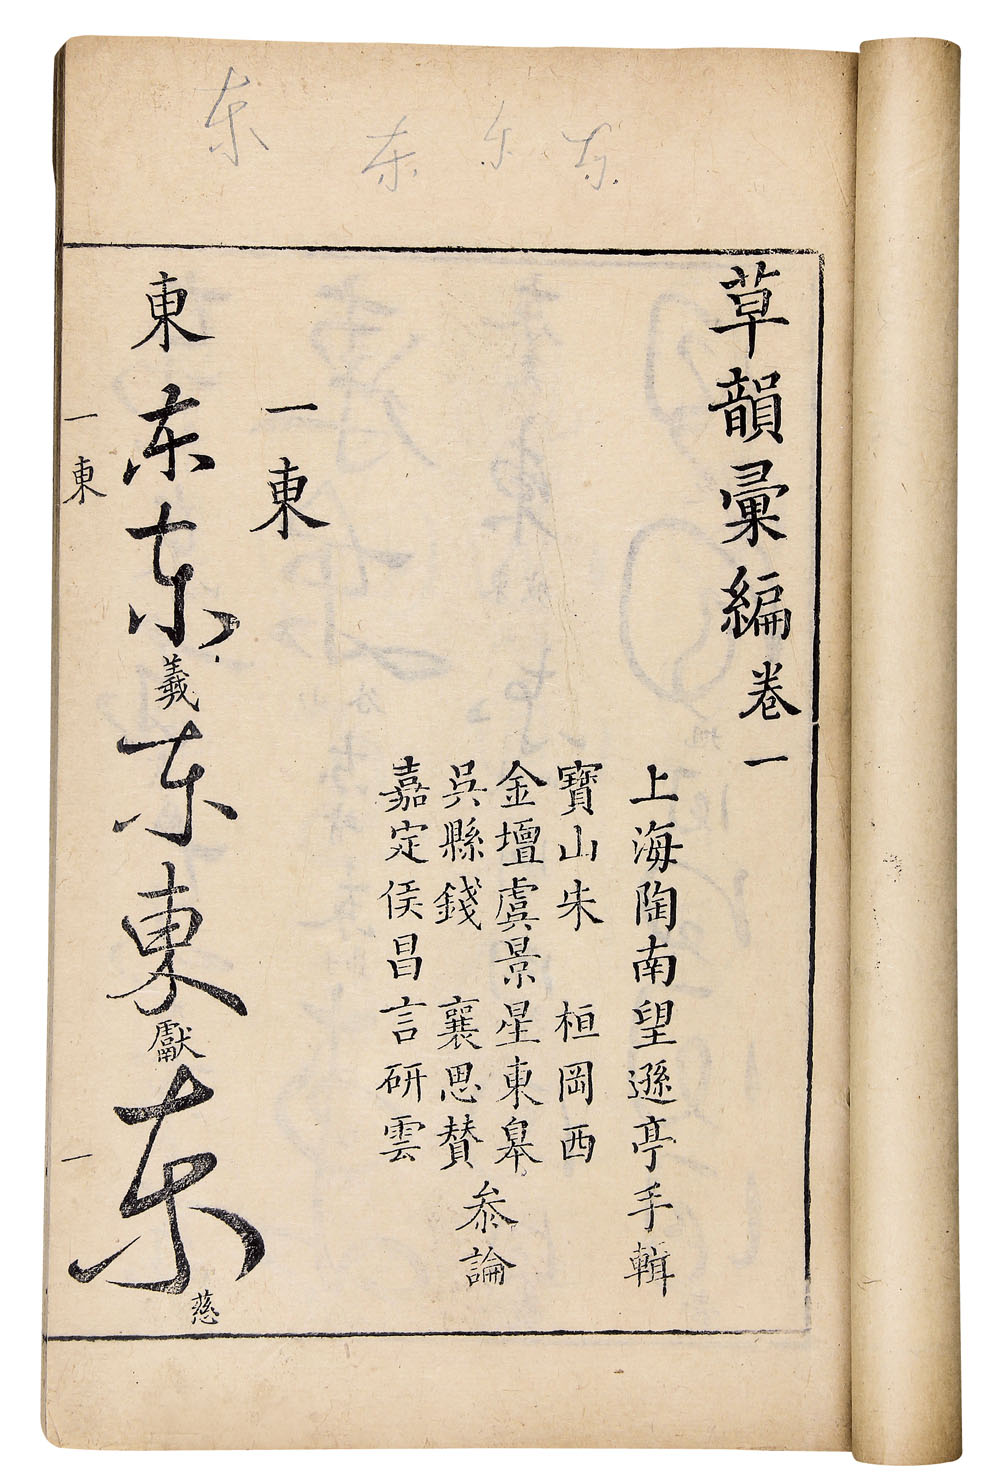 草韻彙編卷一
上海陶南望遜亭手輯
寶山朱桓岡西
金壇虞景星東皋
吳縣錢襄思贊
嘉定侯昌言研雲
叅論
一東
東东东羲东東獻东慈
一東
一